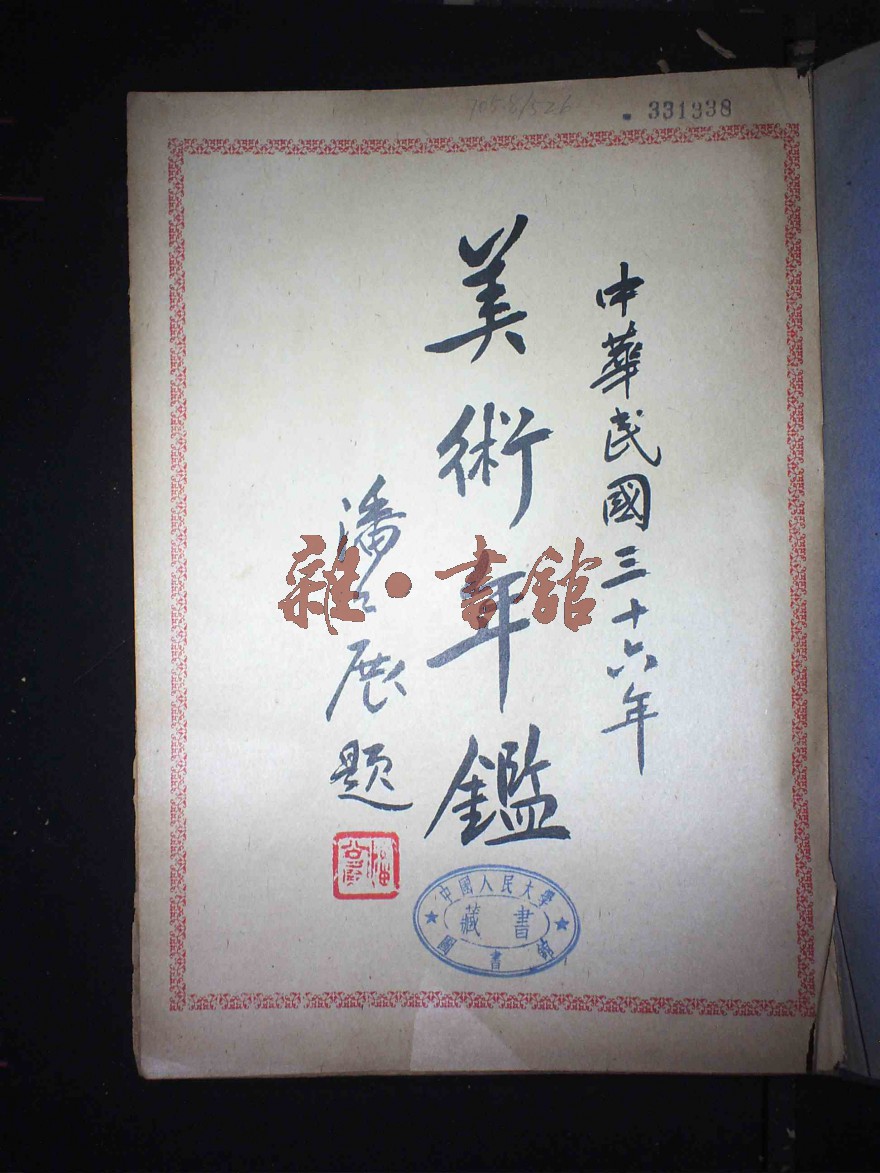 705.8/526
331338
中華民國三十六年
美術年鑑
潘公展題
雜·書館
中國人民大學
藏書
圖書館